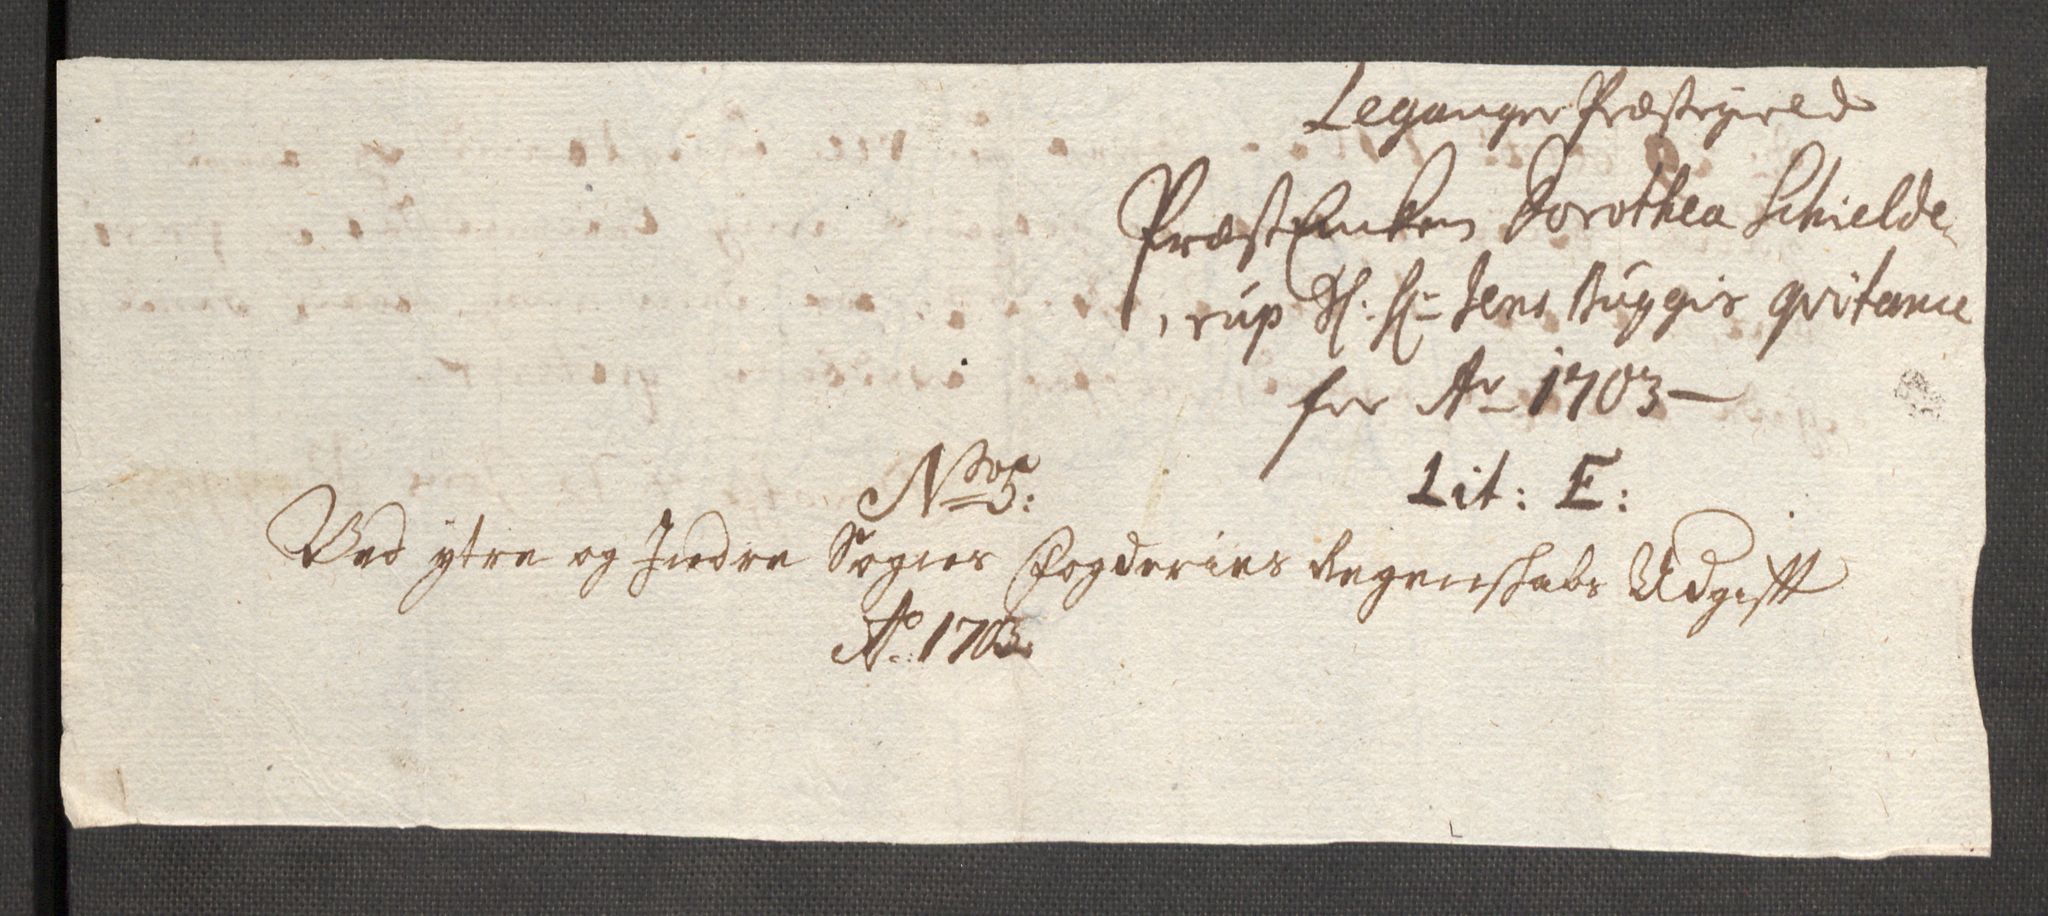 Leganger Præstegield
PræstEncken Dorothea Schielde-
rup Sl: Hr Jens Buggis qvitance
for Ao 1703 —
Lit: E:
No 5:
Ved ytre og Indre Sognes Fogderies Regenskabs Udgifft
Ao: 1703.